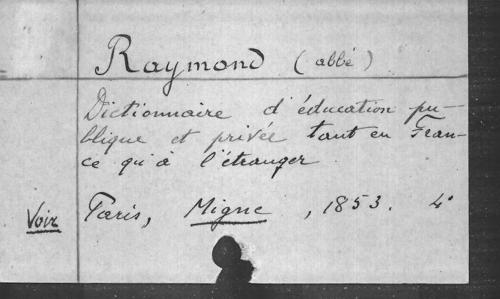 Raymond (abbé)
Dictionnaire d'éducation pu-
blique et privée tant en Fran-
ce qu'à l'étranger.
Voir Paris, Migne, 1853. 4°